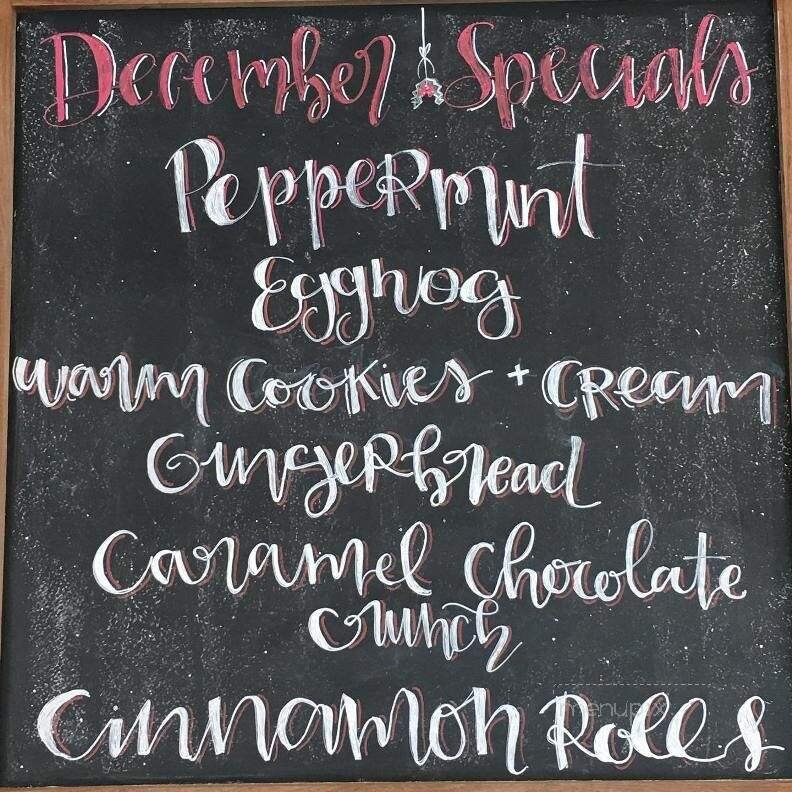 December Specials
Peppermint
Eggnog
Warm Cookies + Cream
Gingerbread
Caramel Chocolate
Crunch
Cinnamon Rolls
menupix